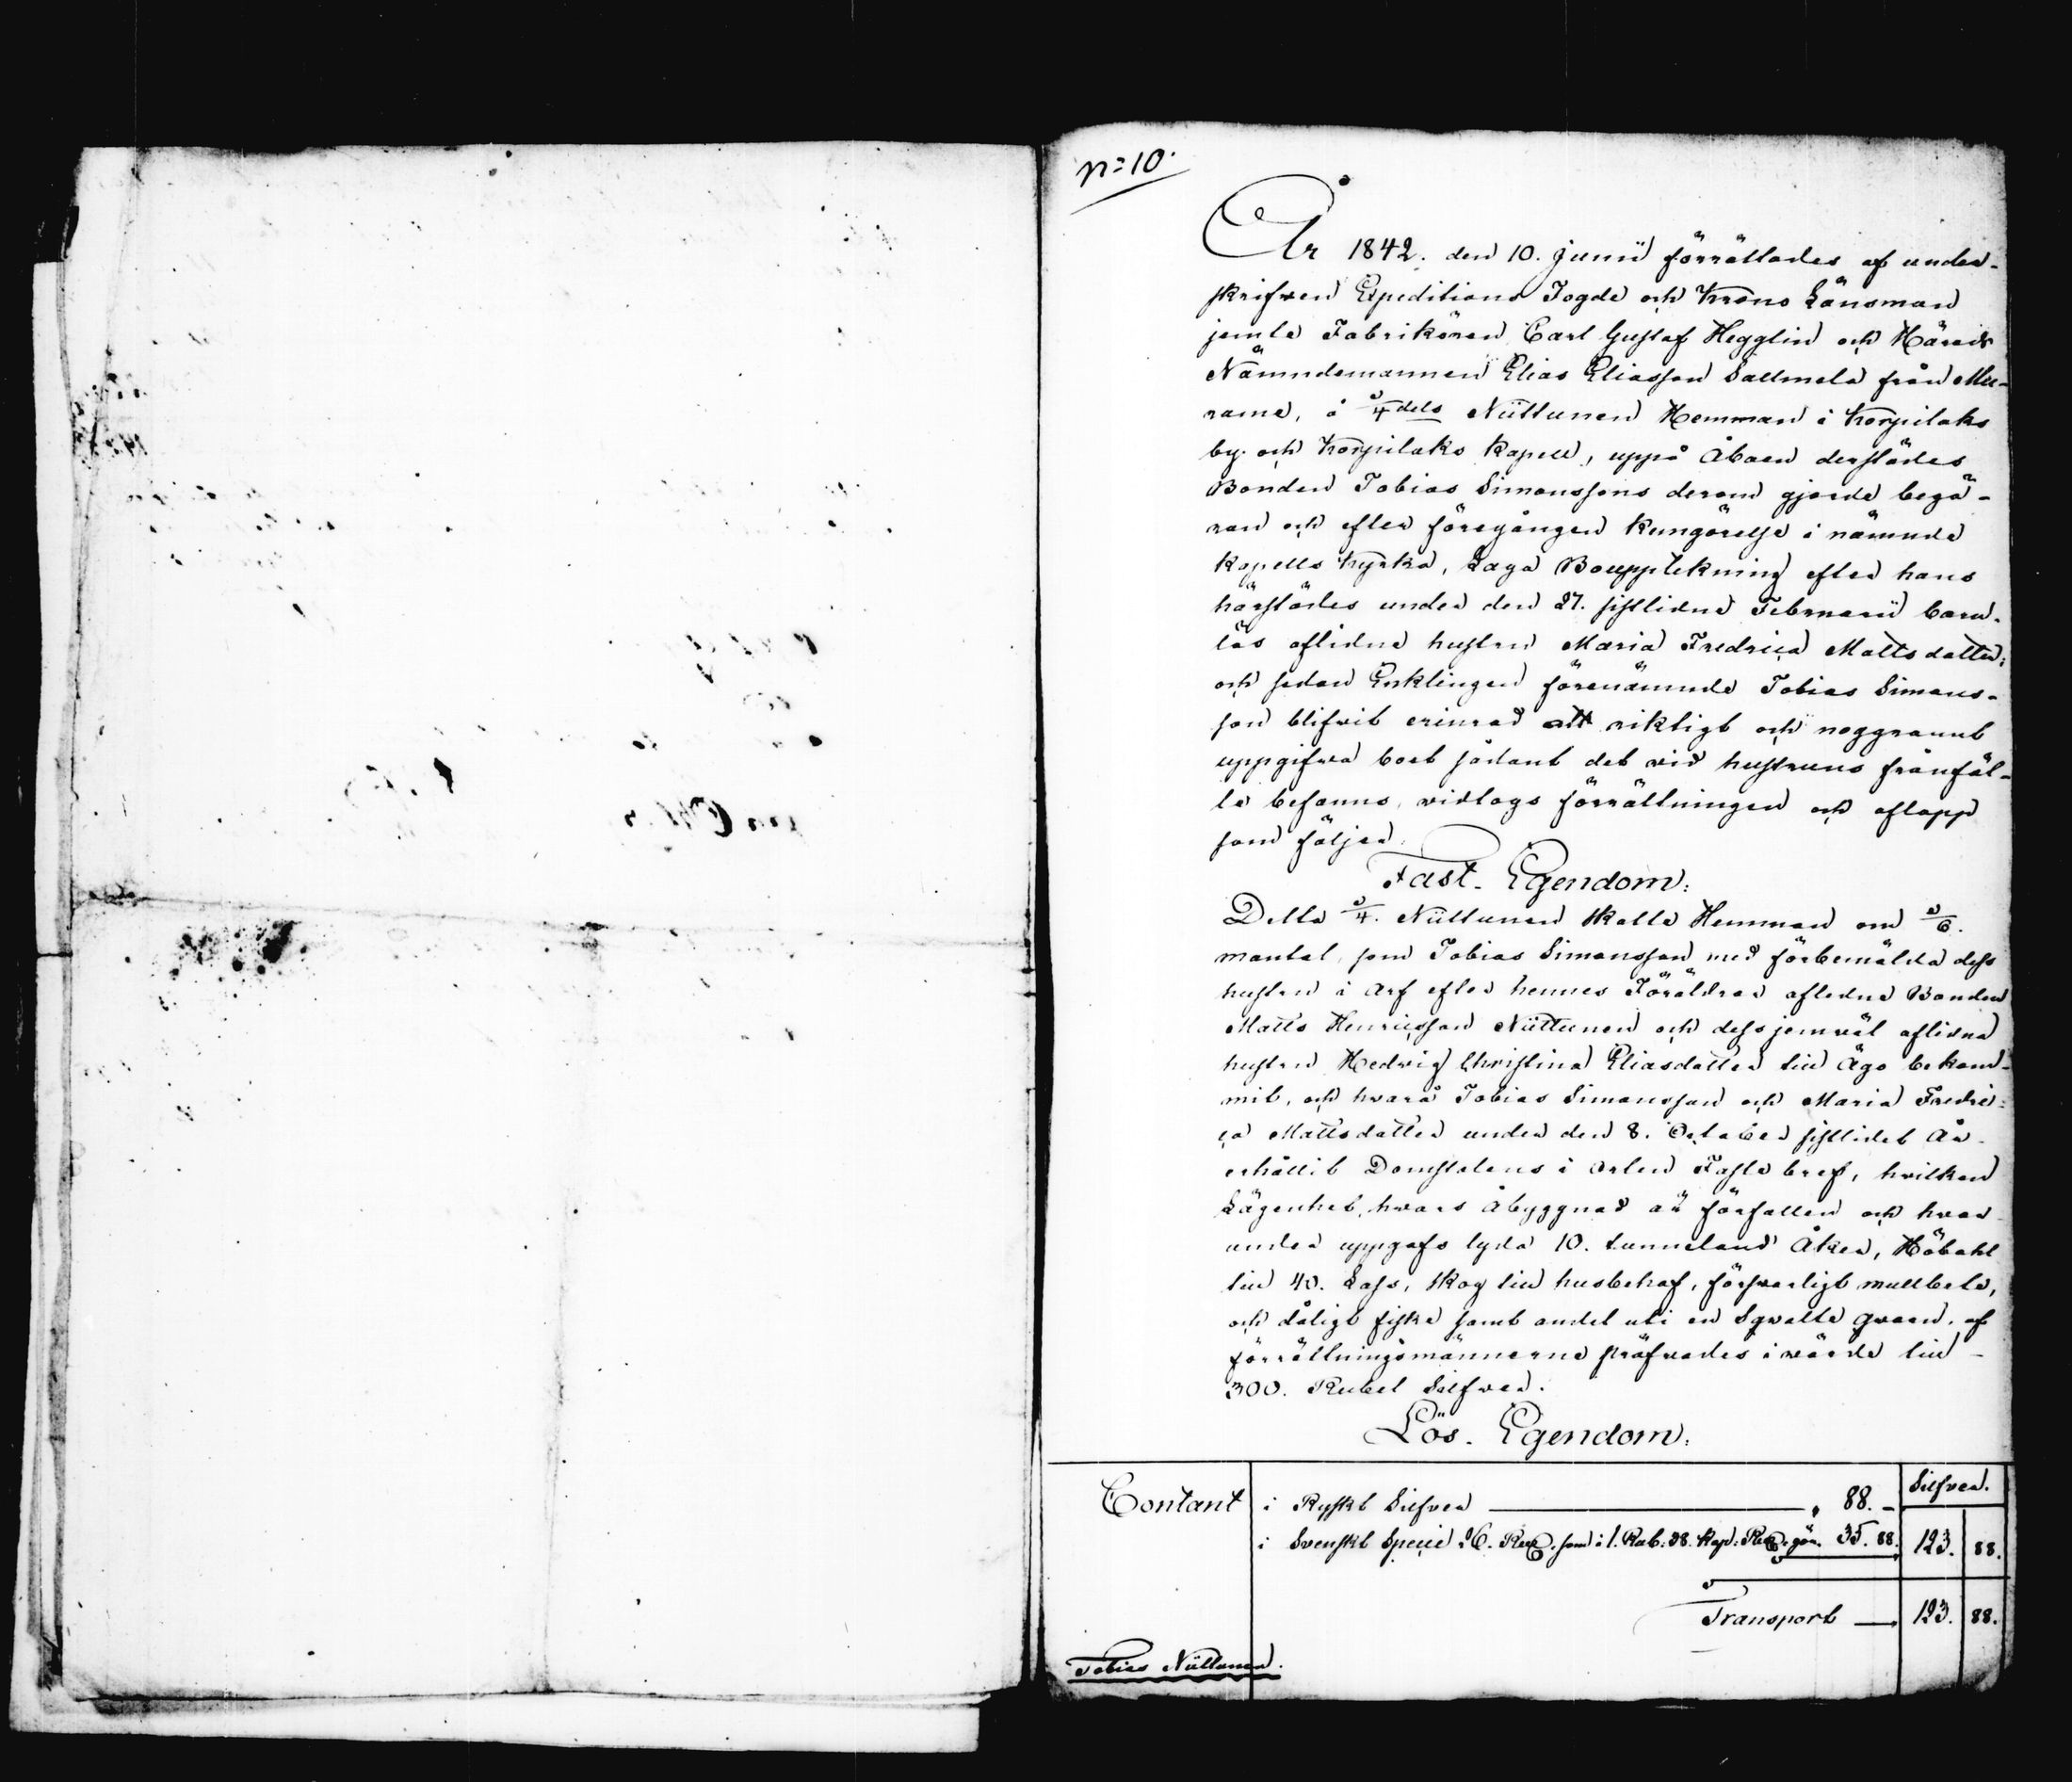 N:10.
År 1842. den 10. Junii förrättades af under-
skrifven Expeditions Fogde och Krono Länsman
jemte Fabrikören Carl Gustaf Hegglin och Härads
Nämndemannen Elias Eliasson Sallmela från Mu-
rame, å dels Niittunen Hemman i Korpilaks
by och Korpilaks Kapell, uppå Åboen derstädes
Bonden Tobias Simonssons derom gjorde begä-
ran och efter föregången Kungörelse i nämnde
Kapells Kyrka, Laga Bouppteckning efter hans
härstädes under den 27. sistlidne Februarii barn-
lös aflidne hustru Maria Fredrica Mattsdotter;
och sedan Enklingen förenämnde Tobias Simons-
son blifvit erinrad att riktigt och noggrannt
uppgifva boet sådant det vid hustruns frånfäl-
le befanns, vidtogs förrättningen och aflopp
som följer.
Fast. Egendom:
Detta Niittunen Skatte Hemman om
mantal, som Tobias Simonsson med förbemälda dess
hustru i arf efter hennes Föräldrar afledne Bonden
Matts Henricsson Niittunen och dess jemväl aflidna
hustru Hedvig Christina Eliasdotter till Ägo bekom-
mit, och hvarå Tobias Simonsson och Maria Fredri-
ca Mattsdotter under den 8. October sistlidet År
erhållit Domstolens i orten Faste bref, hvilken
Lägenhet, hvars Åbyggnad är förfallen och hvar-
under uppgafs lyda 10. tunneland Åker, Höbohl
till 40. Lass, skog till husbehof, försvarligt mullbete,
och dåligt fiske samt andel uti en Sqvalte qvarn, af
förrättningsmännerne pröfvades i värde till
300. Rubel Silfver.
Lös. Egendom:
Silfver.
Contant i Ryskt Silfver 88. -
i Svenskt Specie 26. som i 1. Rub: 38. Kop: gör 35. 88. 123. 88.
Transport 123. 88.
Tobias Niittunen.